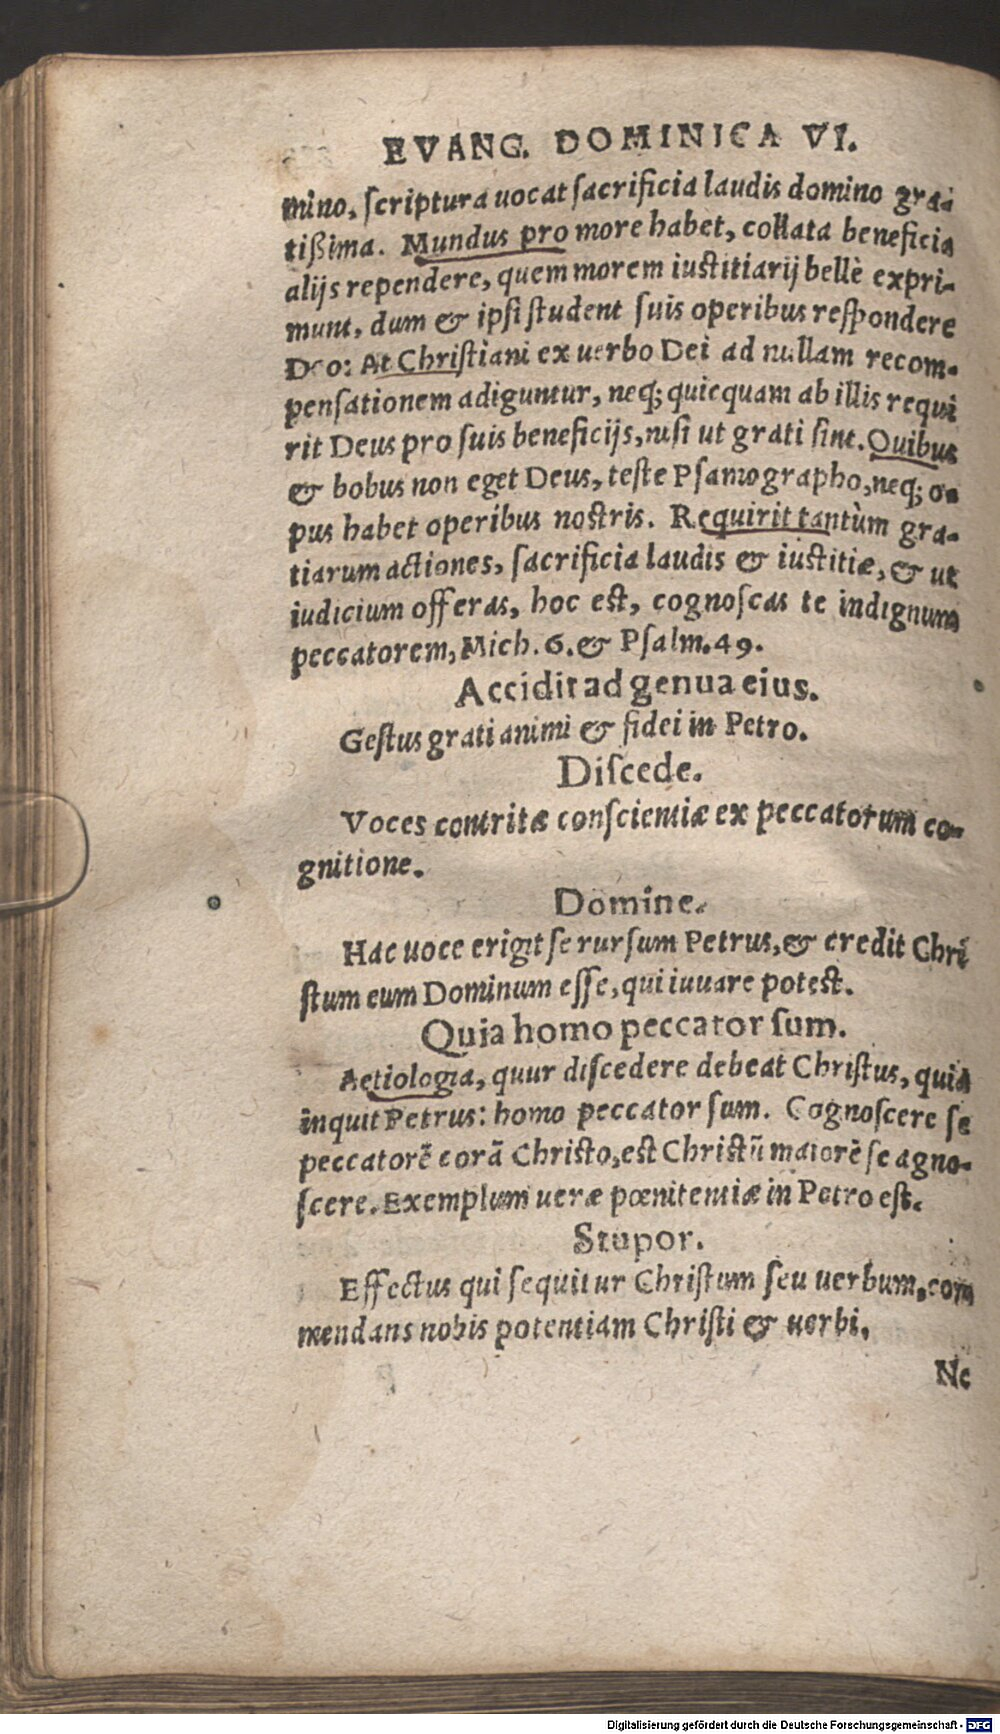 EVANG. DOMINICA VI.
mino, ſcriptura uocat ſacrificia laudis domino gra-
tißima. Mundus pro more habet, collata beneficia
alijs rependere, quem morem iustitiarij bellè expri-
munt, dum & ipſi ſtudent ſuis operibus reſpondere
Deo: At Chriſtiani ex uerbo Dei ad nullam recom-
penſationem adiguntur, neq; quicquam ab illis requi
rit Deus pro ſuis beneficijs, niſi ut grati ſint. Quibus
& bobus non eget Deus, teſte Pſamographo, neq; o-
pus habet operibus nostris. Requirit tantùm gra-
tiarum actiones, ſacrificia laudis & iustitiæ, & ut
iudicium offeras, hoc est, cognoſcas te indignum
peccatorem, Mich. 6. & Pſalm. 49.
Accidit ad genua eius.
Geſtus grati animi & fidei in Petro.
Diſcede.
Voces contritæ conſcientiæ ex peccatorum co-
gnitione.
Domine.
Hac uoce erigit ſe rurſum Petrus, & credit Chri
ſtum eum Dominum eſſe, qui iuuare potest.
Quia homo peccator ſum.
Aetiologia, quur diſcedere debeat Chriſtus, quia
inquit Petrus: homo peccator ſum. Cognoſcere ſe
peccatorē corā Chriſto, est Christū maiorē ſe agno-
ſcere. Exemplum ueræ pœnitentiæ in Petro eſt.
Stupor.
Effectus qui ſequitur Chriſtum ſeu uerbum, com
mendans nobis potentiam Chriſti & uerbi.
Ne
Digitalisierung gefördert durch die Deutsche Forschungsgemeinschaft - DFG